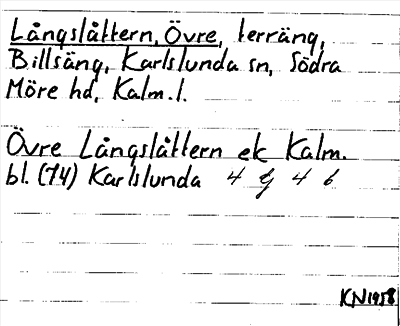 Långslåttern, Övre, terräng,
Billsäng, Karlslunda sn, Södra
Möre hd, Kalm. l.
Övre Långslåttern ek Kalm.
bl. (74) Karlslunda 4 g 4 b
KN 1958